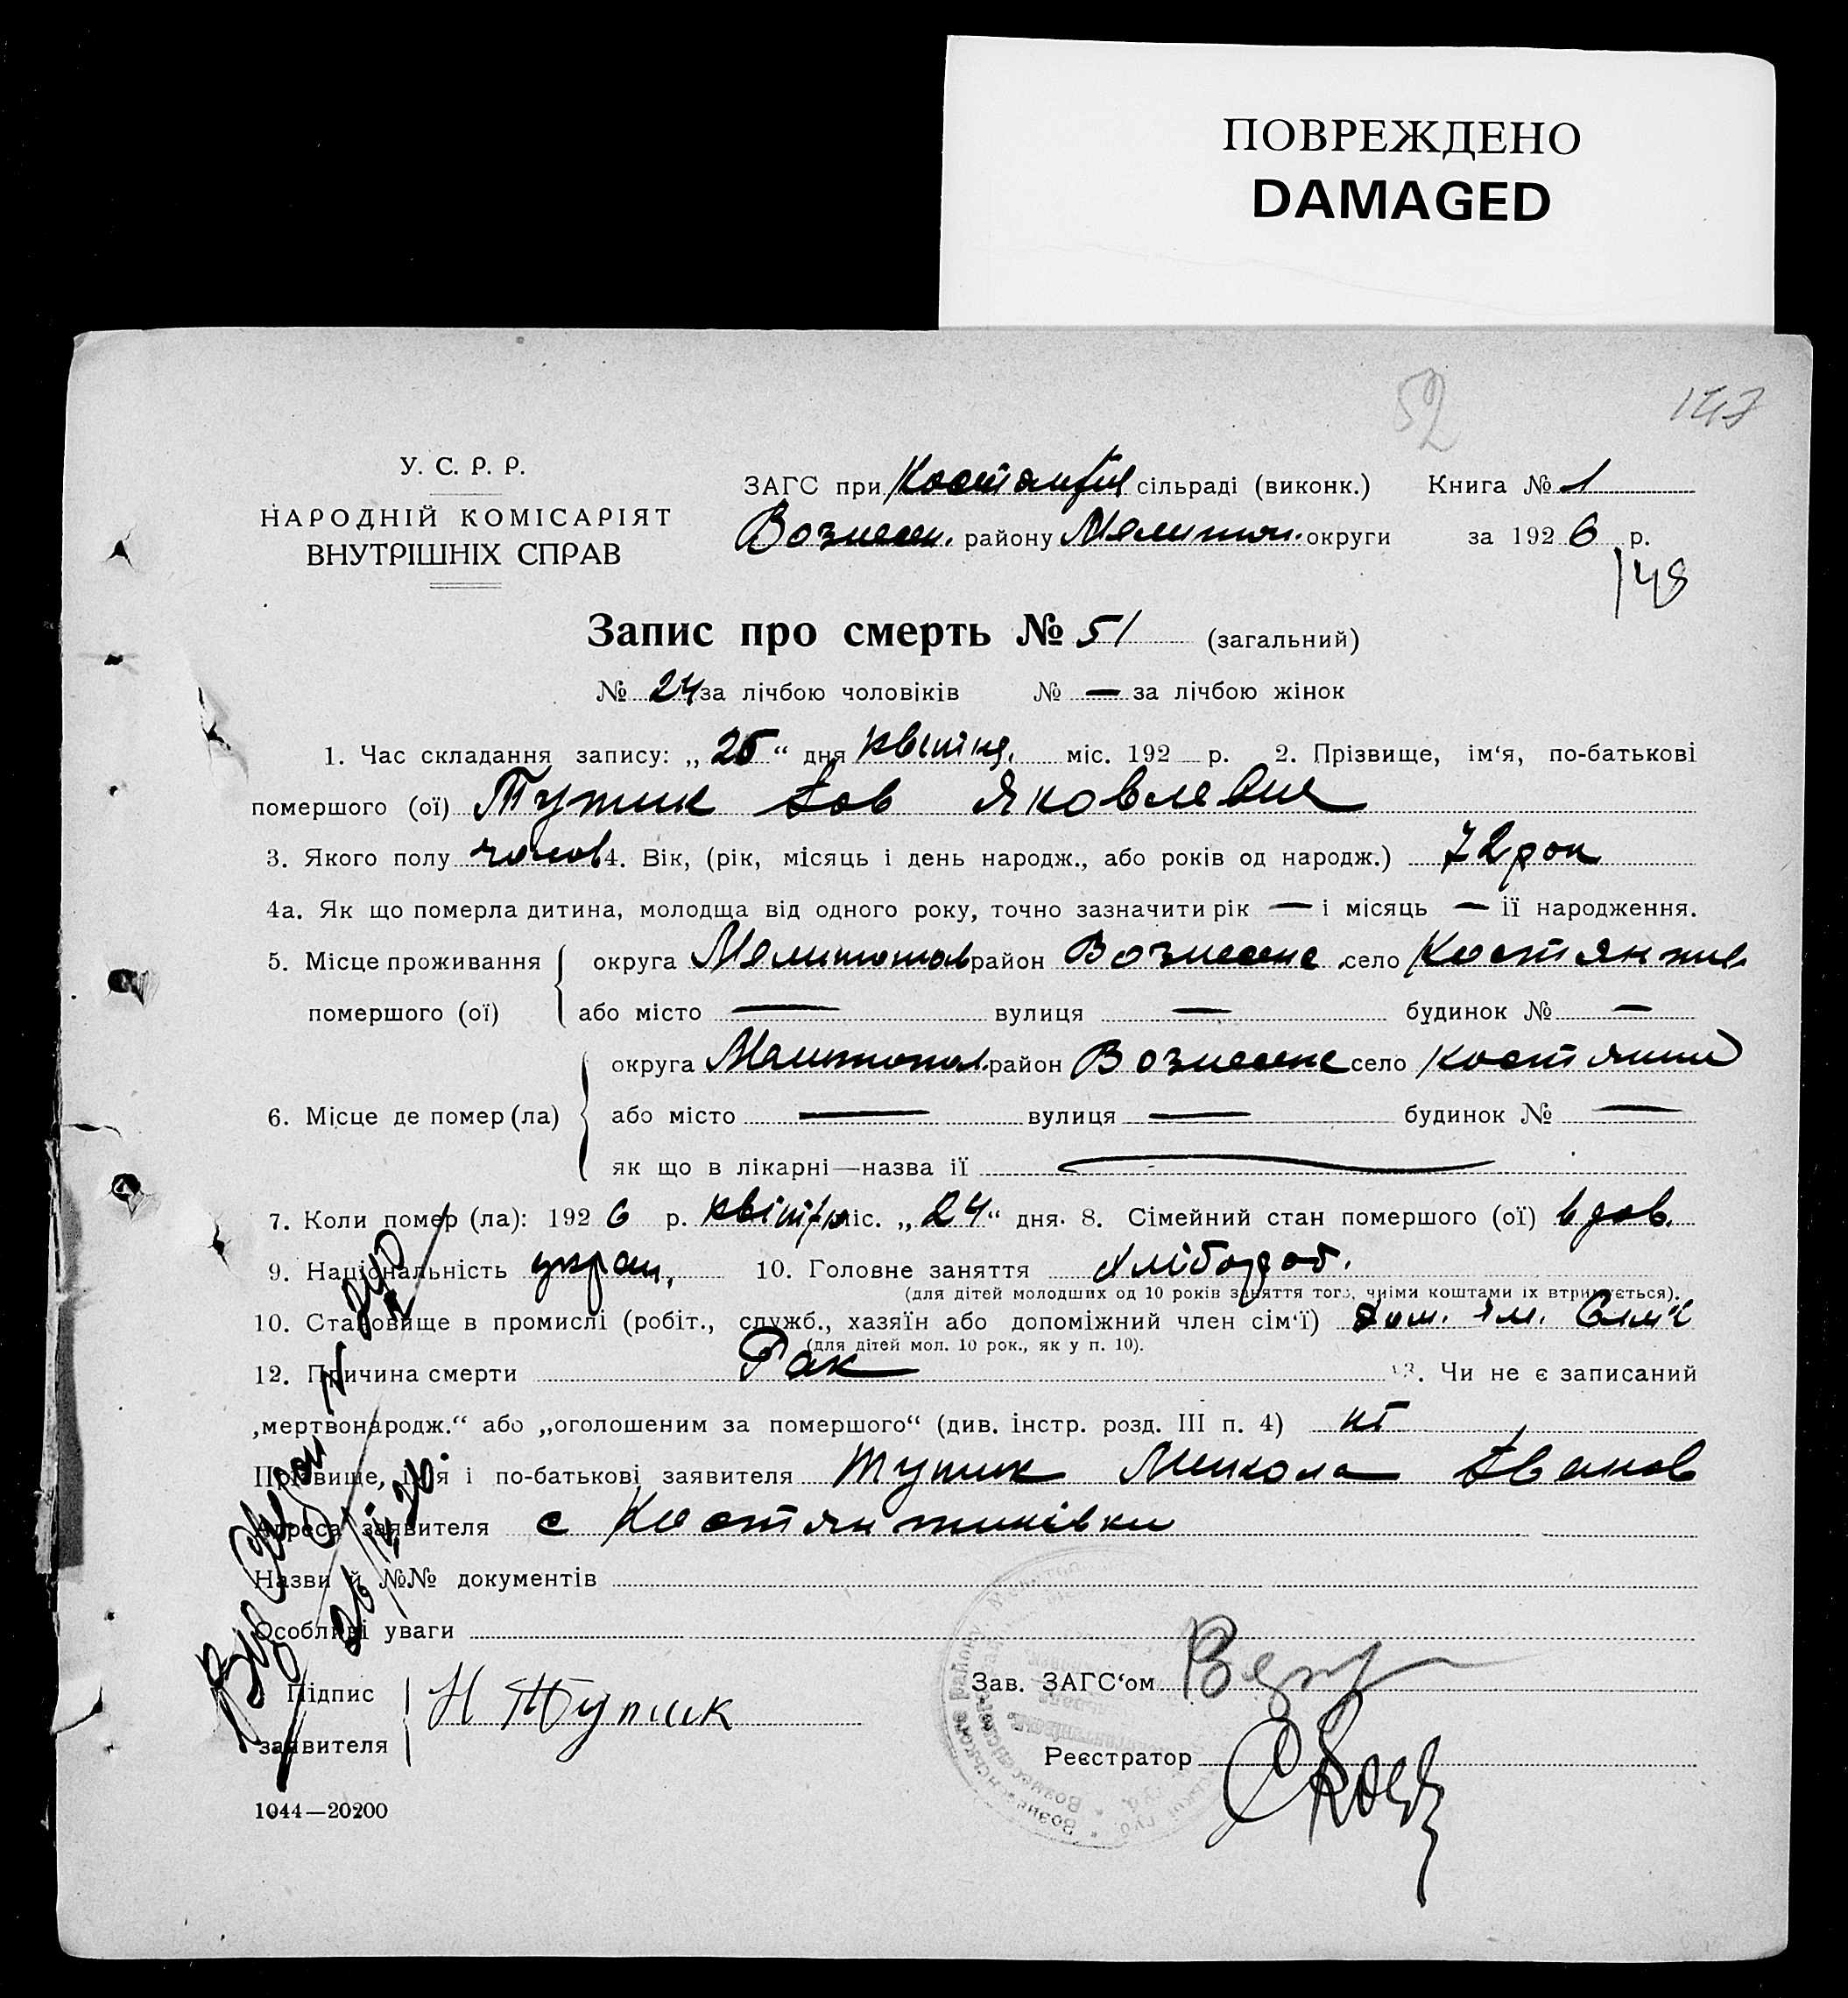 ПОВРЕЖДЕНО
DAMAGED
52
147
У. С. Р. Р.
НАРОДНІЙ КОМІСАРІЯТ
ВНУТРІШНІХ СПРАВ
ЗАГС при сільраді (виконк.) Книга № 1
Вознесен. району Мелитоп. округи за 1926 р.
148
Запис про смерть № 51 (загальний)
№ 24 за лічбою чоловіків № — за лічбою жінок
1. Час складання запису: „25“ дня квітня. міс. 192 р. 2. Прізвище, ім‘я, по-батькові
помершого (ої) Тупик Яковлевич
3. Якого полу чолов 4. Вік, (рік, місяць і день народж., або років од народж.) 72 рок
4а. Як що померла дитина, молодща від одного року, точно зазначити рік — і місяць — ії народження.
5. Місце проживання округа Мелитопол район Вознесенс село Костянтив
помершого (ої) або місто — вулиця — будинок № —
округа Мелитопол. район Вознесенс село
6. Місце де помер (ла) або місто — вулиця — будинок № —
як що в лікарні—назва ії —
7. Коли помер (ла): 1926 р. квітня міс. „24“ дня. 8. Сімейний стан помершого (ої) вдов.
9. Національність украи. 10. Головне заняття хлібороб.
(для дітей молодших од 10 років заняття того, чиіми коштами іх втримується).
10. Становище в промислі (робіт., служб., хазяїн або допоміжний член сім‘ї)
(для дітей мол. 10 рок., як у п. 10).
12. Причина смерти Рак 13. Чи не є записаний
„мертвонародж.“ або „оголошеним за помершого“ (див. інстр. розд. III п. 4) ні
Прізвище, ім‘я і по-батькові заявителя Тупик Микола Іванов
Адреса заявителя с Костянтинівки
Назви й №№ документів
Особливі уваги
Підпис
заявителя Н Тупик
Зав. ЗАГС‘ом
Реєстратор
1044—20200